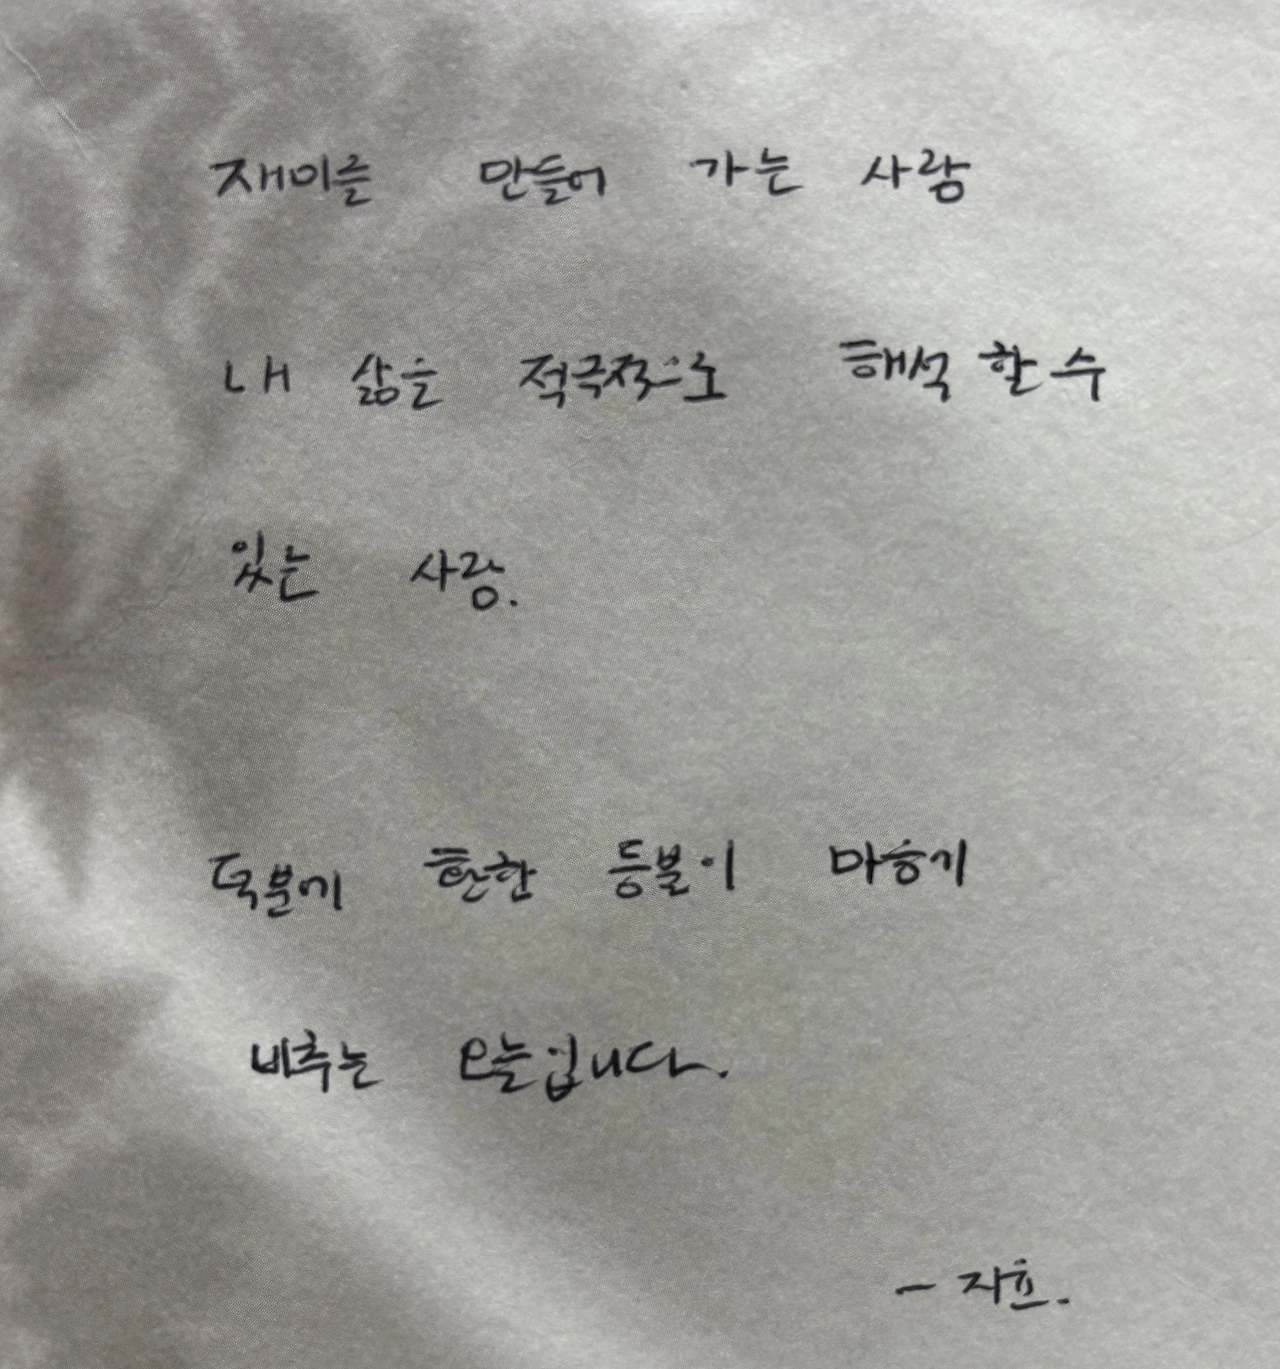 재미를 만들어 가는 사람
내 삶을 적극적으로 해석 할 수
있는 사람.
덕분에 환한 등불이 마음에
비추는 오늘입니다.